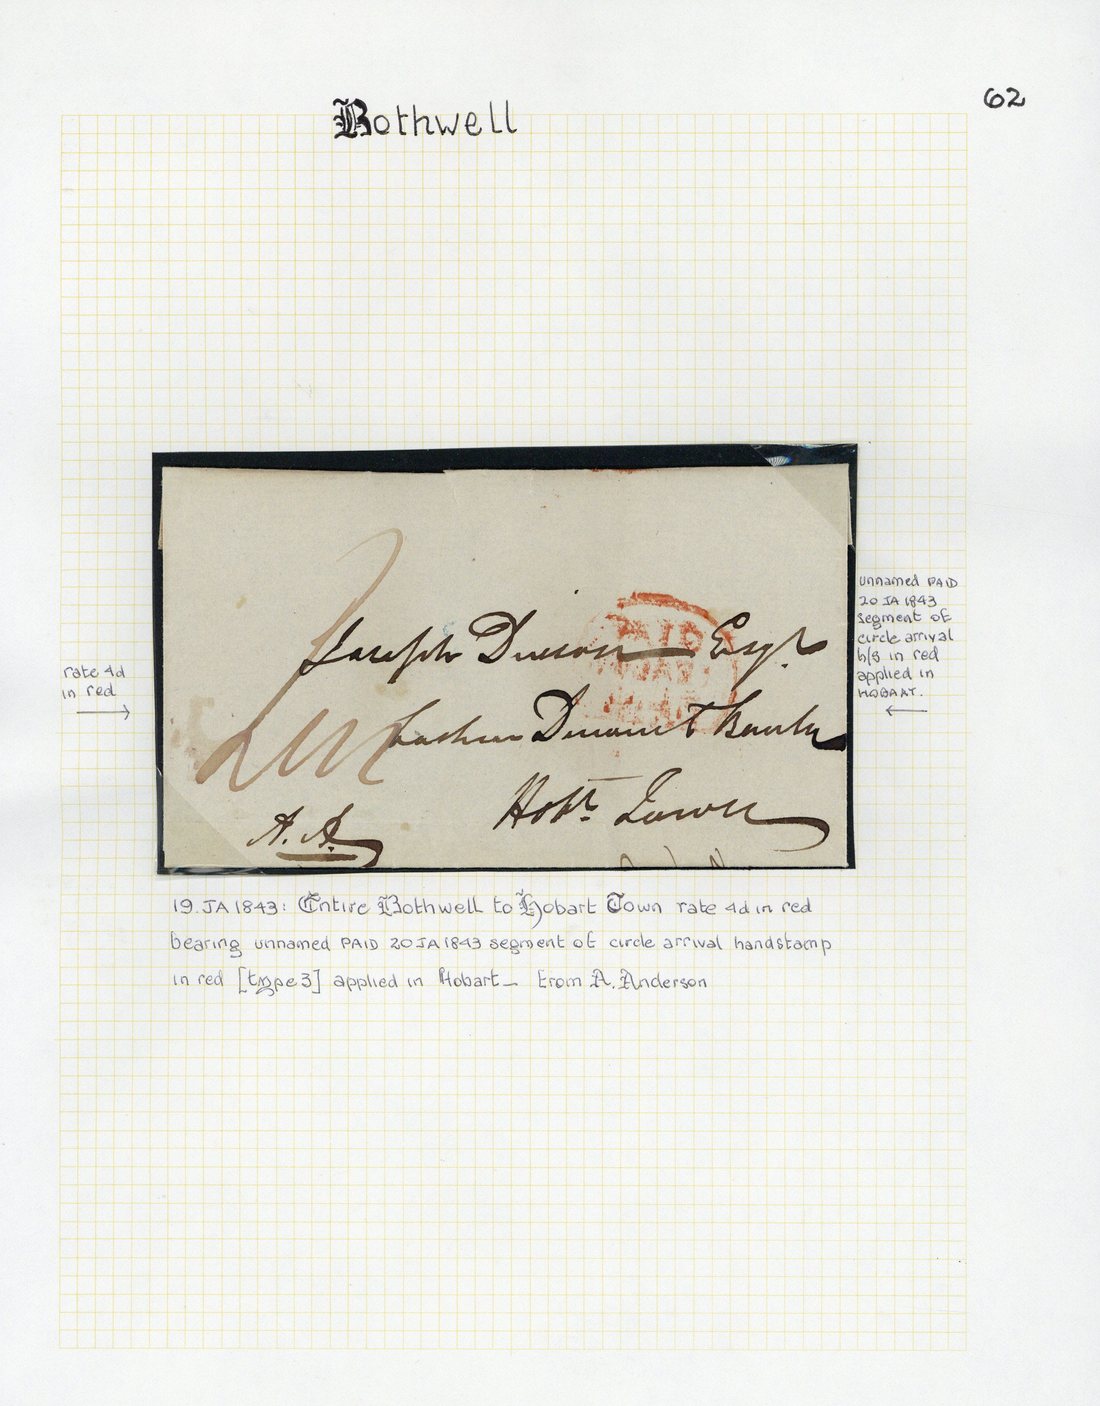 62
Bothwell
unnamed PAID
20 JA 1843
segment of
circle arrival
h/s in red
applied in
HOBART.
rate 4d
in red
Joseph Esqr
PAID
Hobt. Town
A. A.
19. JA 1843: Entire Bothwell to Hobart Town rate 4d in red
bearing unnamed PAID 20 JA 1843 segment of circle arrival handstamp
in red [type 3] applied in Hobart - from A. Anderson